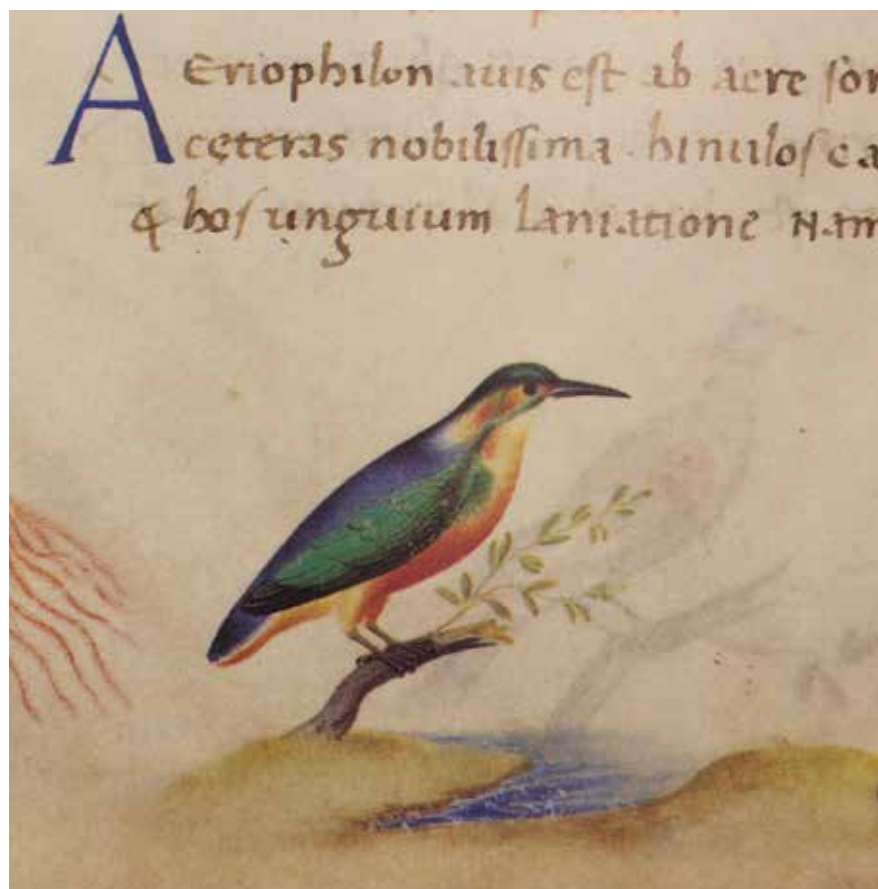 AEriophilon auis est ab aere sor
cęteras nobilissima · hinulos ca
& hos unguium laniatione Nam